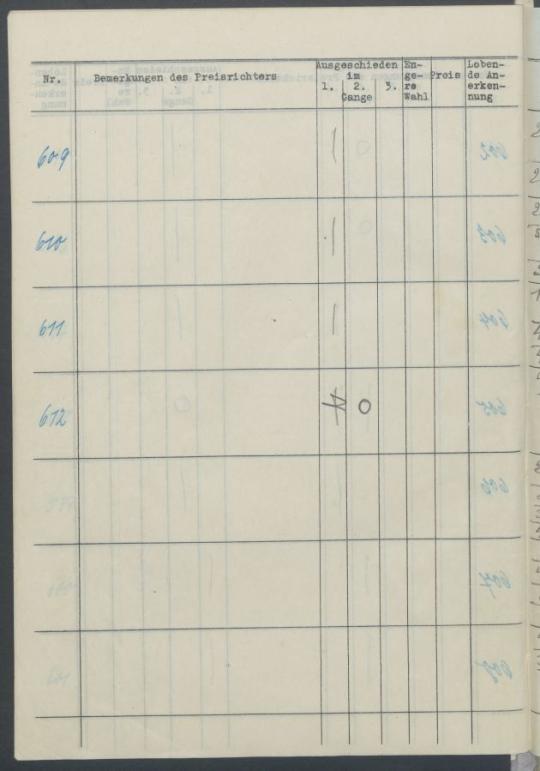 Nr. Bemerkungen des Preisrichters Ausgeschieden im 1. 2. 3. Gange En-ge-re Wahl Preis Loben-de An-erken-nung
609 |
610 |
611 |
612 O